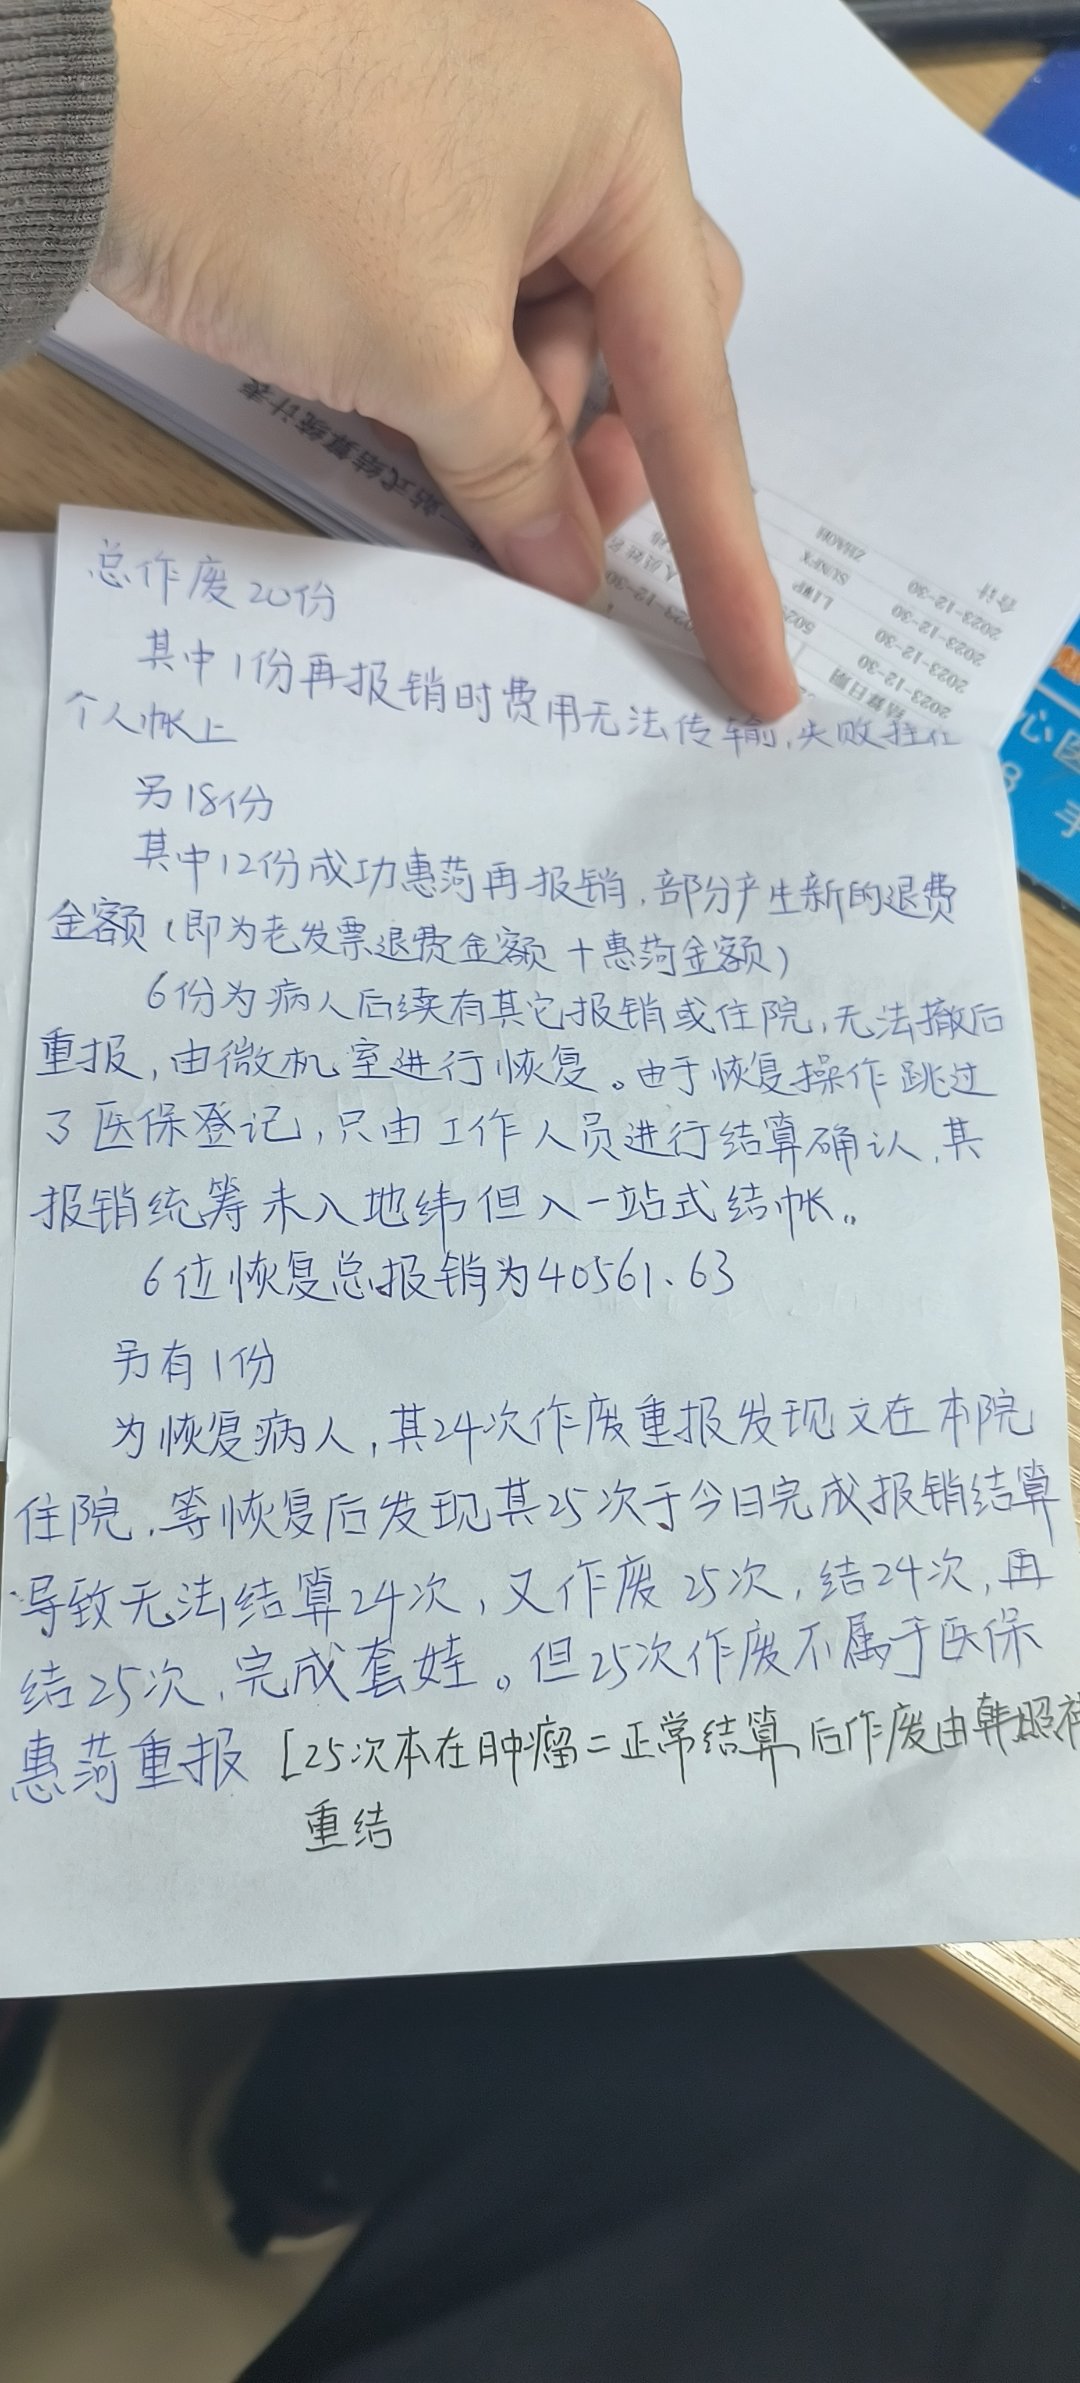 一站式结算统计表
人员姓名
结算日期
2023-12-30
2023-12-30 LIWP
2023-12-30 SUNFX
2023-12-30 ZHAOH
合计
总作废20份
其中1份再报销时费用无法传输,失败挂在
个人帐上
另18份
其中12份成功惠菏再报销,部分产生新的退费
金额(即为老发票退费金额+惠菏金额)
6份为病人后续有其它报销或住院,无法撤后
重报,由微机室进行恢复。由于恢复操作跳过
了医保登记,只由工作人员进行结算确认,其
报销统筹未入地纬但入一站式结帐。
6位恢复总报销为40561.63
另有1份
为恢复病人,其24次作废重报发现又在本院
住院,等恢复后发现其25次于今日完成报销结算
导致无法结算24次,又作废25次,结24次,再
结25次,完成套娃。但25次作废不属于医保
惠菏重报 [25次本在肿瘤二正常结算,后作废由韩照
重结